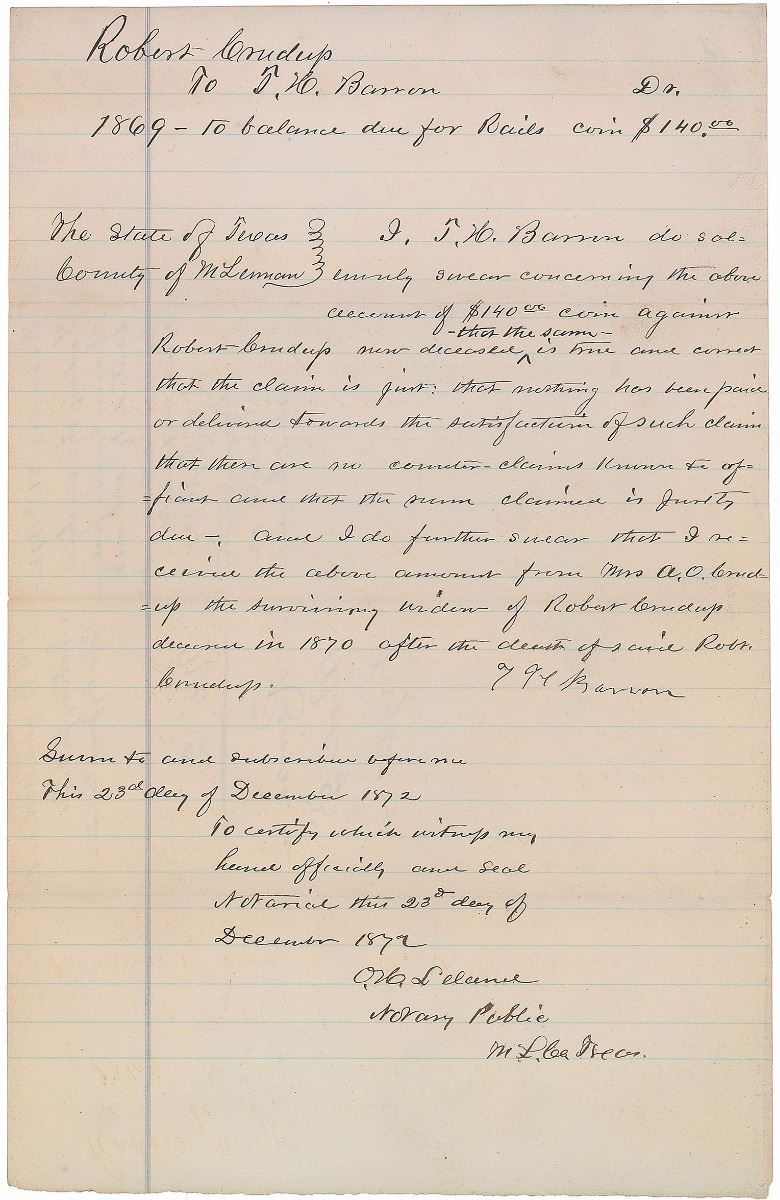 Robert Crudup
To T. H. Barron Dr.
1869 - To balance due for Rails coin $140.00
The State of Texas I, T. H. Barron do sol=
County of McLennan emnly swear concerning the above
account of $140 00 coin against
- that the same -
Robert Crudup now deceased, ^ is true and correct
that the claim is just: that nothing has been paid
or delivered towards the satisfaction of such claim
that there are no counter-claims known to af=
=fiant and that the sum claimed is justly
due -. and I do further swear that I re=
ceived the above amount from Mrs A. O. Crud-
=up the surviving widow of Robert Crudup
deceased in 1870 after the death of said Robt.
Crudup. T H Barron
Sworn to and subscribed before me
This 23d day of December 1872
To certify which witness my
hand officially and seal
Notarial this 23d day of
December 1872
O. H. Leland
Notary Public
McL. Co Texas.